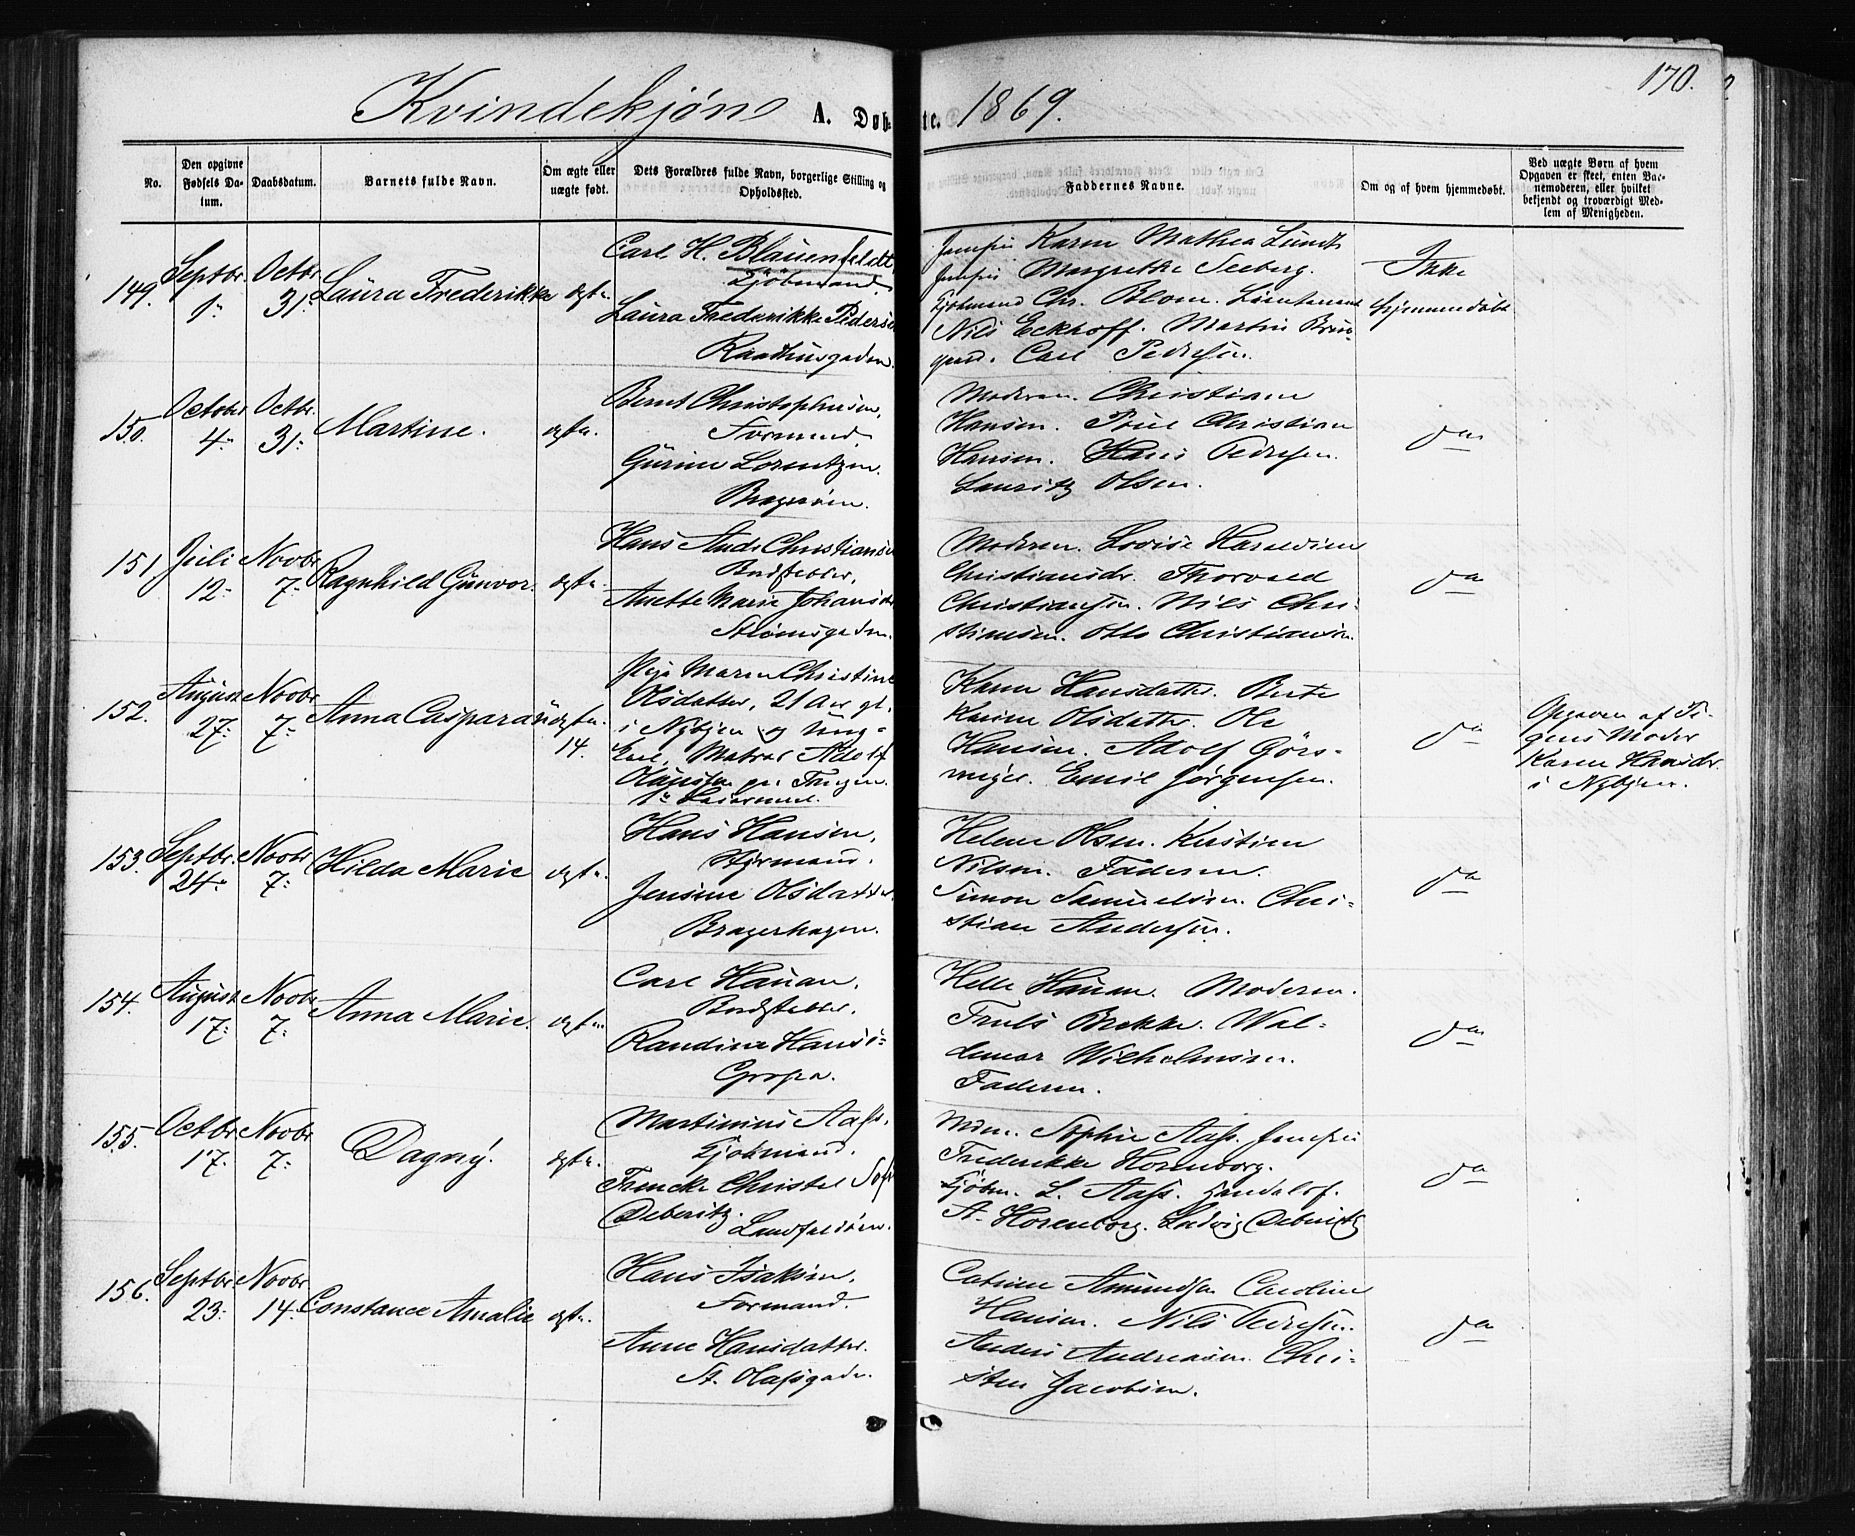 170.
Kvindekjøn A. Døbte. 1869.
No.
Den opgivne Fødsels Datum.
Daabsdatum.
Barnets fulde Navn.
Om ægte eller uægte født.
Dets Forældres fulde Navn, borgerlige Stilling og Opholdssted.
Faddernes Navne.
Om og af hvem hjemmedøbt.
Ved uægte Børn af hvem Opgaven er skeet, enten Barnemoderen, eller hvilket bekjendt og troværdigt Medlem af Menigheden.
149.
Septbr.
1:
Octbr.
31:
Laura Frederikke
ægte.
Carl H. Blauenfeldt
Kjøbmand.
Laura Frederikke Peders
Raadhusgaden.
Jomfru Karen Mathea Lundt
Jomfru Margrethe Seeberg.
Kjøbmand Chr. Blom. Lieutenant
Nils Eckhoff. Martin Bruu-
gaard. Carl Pedersen.
Ikke
hjemmedøbt
150.
October
4:
Octbr.
31:
Martine.
ægte.
Bernt Christophersen,
Formand.
Gurine Lorentzen.
Bragerøen.
Moderen. Christiane
Hansen. Poul Christian
Hansen. Hans Pedersen.
Lauritz Olsen.
da
151
Juli
12:
Novbr
7:
Ragnhild Gunvor.
ægte.
Hans Ands Christians
Bødtker,
Anette Marie Johansd
Strømsgaden.
Moderen. Lovise Haraldine
Christiansdr. Thorvald
Christiansen. Nils Chri-
stiansen. Otto Christiansen.
da
152.
August
27:
Novbr
7:
Anna Caspara
uægte.
14.
Pige Maren Christine
Olsdatter, 21 Aar gl.
i Nybyen og Ung-
karl, Matros Adolf
Olausen
1: Leiermaal.
Karen Hansdatter. Berte
Karine Olsdatter. Ole
Hansen. Adolf Görs-
meyer. Emil Jørgensen.
da
Opgaven af Pi-
gens Moder
Karen Hansdr.
i Nybyen.
153.
Septbr.
24:
Novbr
7:
Hilda Marie
ægte.
Hans Hansen,
Styrmand.
Jensine Olsdatter
Bragerhagen.
Helene Olsen. Kerstine
Nilsen. Faderen.
Simon Samuelsen. Chri-
stian Andersen.
da
154.
August
17:
Novbr
7:
Anna Marie.
ægte
Carl Hauan.
Randine Hans:
Gropa.
Helle Hauan. Moderen.
Truls Brekke. Wal-
demar Wilhelmsen.
Faderen.
da
155.
Octbr.
17.
Novbr
7:
Dagny.
ægte.
Martinius Aass.
Kjøbmand.
Francke Christel Sof
Deberitz.
Landfaldøen.
Mdm. Sophie Aass. Jomfru
Frederikke Horenborg.
Kjøbm. L. Aass. Handelsf.
A. Horenborg. Ludvig Deberitz
da
156.
Septbr.
23:
Novbr
14:
Constance Amalie
ægte.
Hans Isaksen.
Formand.
Anne Hansdatter.
St. Olafsgaden.
Catrine Amundsen Caroline
Hansen. Nils Pedersen.
Anders Andreasen. Chri-
sten Jacobsen.
da